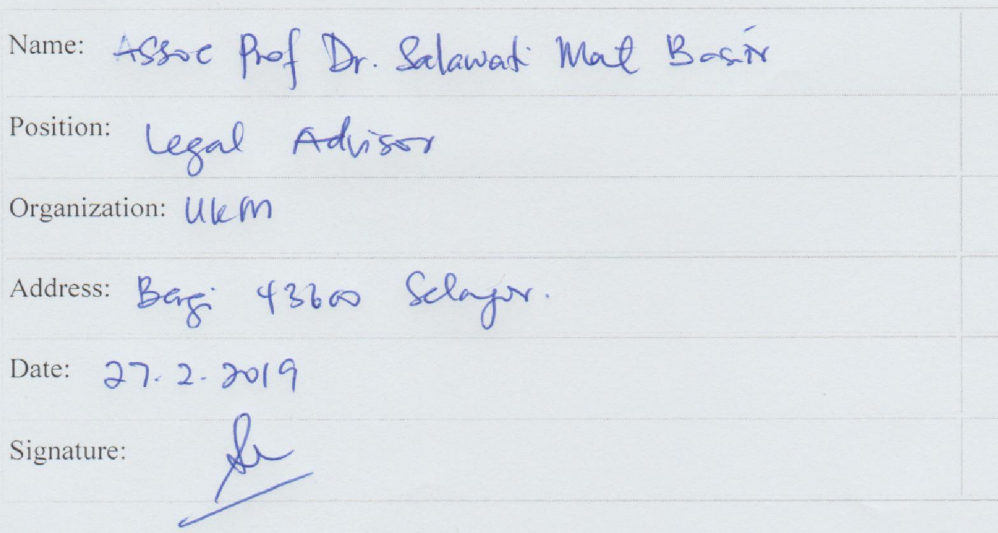 Name: Assoc Prof Dr. Salawati Mat Basir
Position: Legal Advisor
Organization: UKM
Address: Bangi 43600 Selangor.
Date: 27.2.2019
Signature: